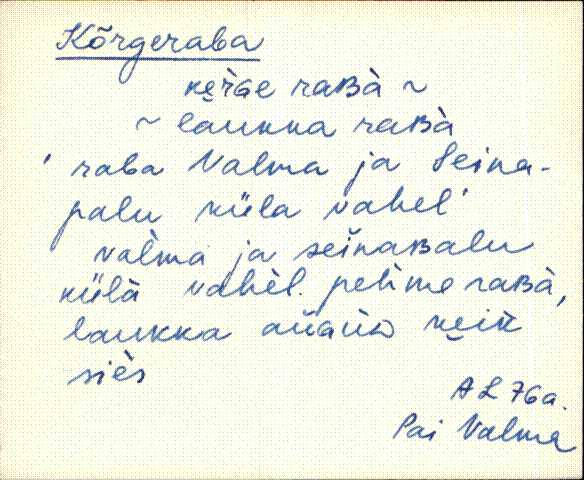 Kõrgeraba
ke̮rGe raBà ~
~ laukka raBà
' raba Valma ja Leina-
palu küla vahel'
valma ja leinaBalu
külä vahèl. pehme raBà,
laukka
siès
AL 76a.
Pai Valma